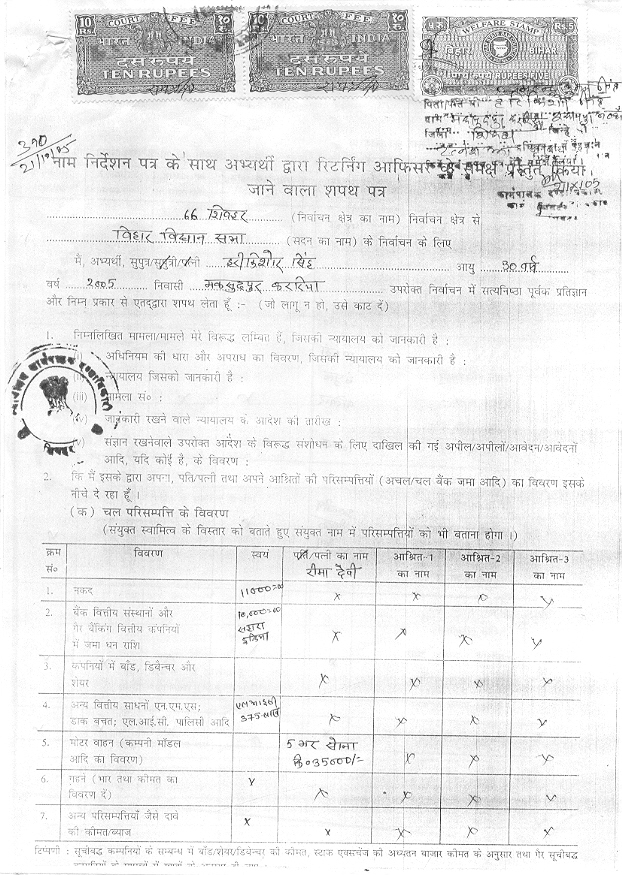 COURT FEE
10 Rs.
१० रु.
भारत INDIA
दस रुपये
TEN RUPEES
COURT FEE
10 Rs.
१० रु.
भारत INDIA
दस रुपये
TEN RUPEES
WELFARE STAMP
बिहार BIHAR
पांच रुपये RUPEES FIVE
नाम निर्देशन पत्र के साथ अभ्यर्थी द्वारा रिटर्निंग आफिसर के समक्ष प्रस्तुत किया
जाने वाला शपथ पत्र
66 शिवहर (निर्वाचन क्षेत्र का नाम) निर्वाचन क्षेत्र से
बिहार विधान सभा (सदन का नाम) के निर्वाचन के लिए
मैं, अभ्यर्थी, सुपुत्र/सुपुत्री/पत्नी हरी किशोर सिंह आयु 30 वर्ष
वर्ष 2005 निवासी मकसुदपुर कररिया उपरोक्त निर्वाचन में सत्यनिष्ठा पूर्वक प्रतिज्ञान
और निम्न प्रकार से एतद्द्वारा शपथ लेता हूँ :- (जो लागू न हो, उसे काट दें)
1. निम्नलिखित मामला/मामले मेरे विरूद्ध लम्बित हैं, जिसकी न्यायालय को जानकारी है :
(i) अधिनियम की धारा और अपराध का विवरण, जिसकी न्यायालय को जानकारी है :
(ii) न्यायालय जिसको जानकारी है :
(iii) मामला सं० :
(iv) जानकारी रखने वाले न्यायालय के आदेश की तारीख :
(v) संज्ञान रखनेवाले उपरोक्त आदेश के विरूद्ध संशोधन के लिए दाखिल की गई अपील/अपीलों/आवेदन/आवेदनों
आदि, यदि कोई है, के विवरण :
2. कि मैं इसके द्वारा अपना, पति/पत्नी तथा अपने आश्रितों की परिसम्पत्तियों (अचल/चल बैंक जमा आदि) का विवरण इसके
नीचे दे रहा हूँ ।
(क) चल परिसम्पत्ति के विवरण
(संयुक्त स्वामित्व के विस्तार को बताते हुए संयुक्त नाम में परिसम्पत्तियों को भी बताना होगा ।)
क्रम सं० विवरण स्वयं पति/पत्नी का नाम आश्रित-1 आश्रित-2 आश्रित-3
रीमा देवी का नाम का नाम का नाम
1. नकद 11000=00 x x x x
2. बैंक वित्तीय संस्थानों और 10,000=00
गैर बैंकिंग वित्तीय कंपनियों सहारा x x x x
में जमा धन राशि इंडिया
3. कंपनियों में बॉंड, डिबेन्चर और
शेयर x x x x
4. अन्य वित्तीय साधनों एन.एम.एस; एल आइ सी
डाक बचत; एल.आई.सी. पालिसी आदि x x x x
5. मोटर वाहन (कम्पनी मॉडल 5 भर सोना
आदि का विवरण) रु० 35000/- x x x
6. गहने (भार तथा कीमत का x
विवरण दें) x x x x
7. अन्य परिसम्पत्तियां जैसे दावे x
की कीमत/ब्याज x x x x
टिप्पणी : सूचीबद्ध कम्पनियों के सम्बन्ध में बॉंड/शेयर/डिबेन्चर की कीमत, स्टाक एक्सचेंज की अध्यतन बाजार कीमत के अनुसार तथा गैर सूचीबद्ध